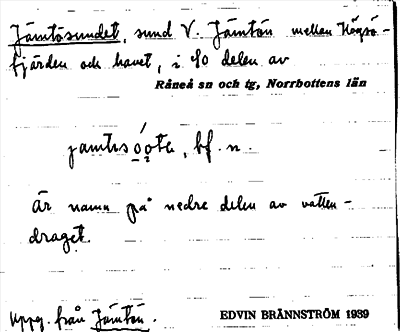 Jämtösundet, sund V. Jämtön mellan Högsö-
fjärden och havet, i SO delen av
Råneå sn och tg, Norrbottens län
bf. n.
är namn på nedre delen av vatten-
draget.
Uppg. från Jämtön.
EDVIN BRÄNNSTRÖM 1939